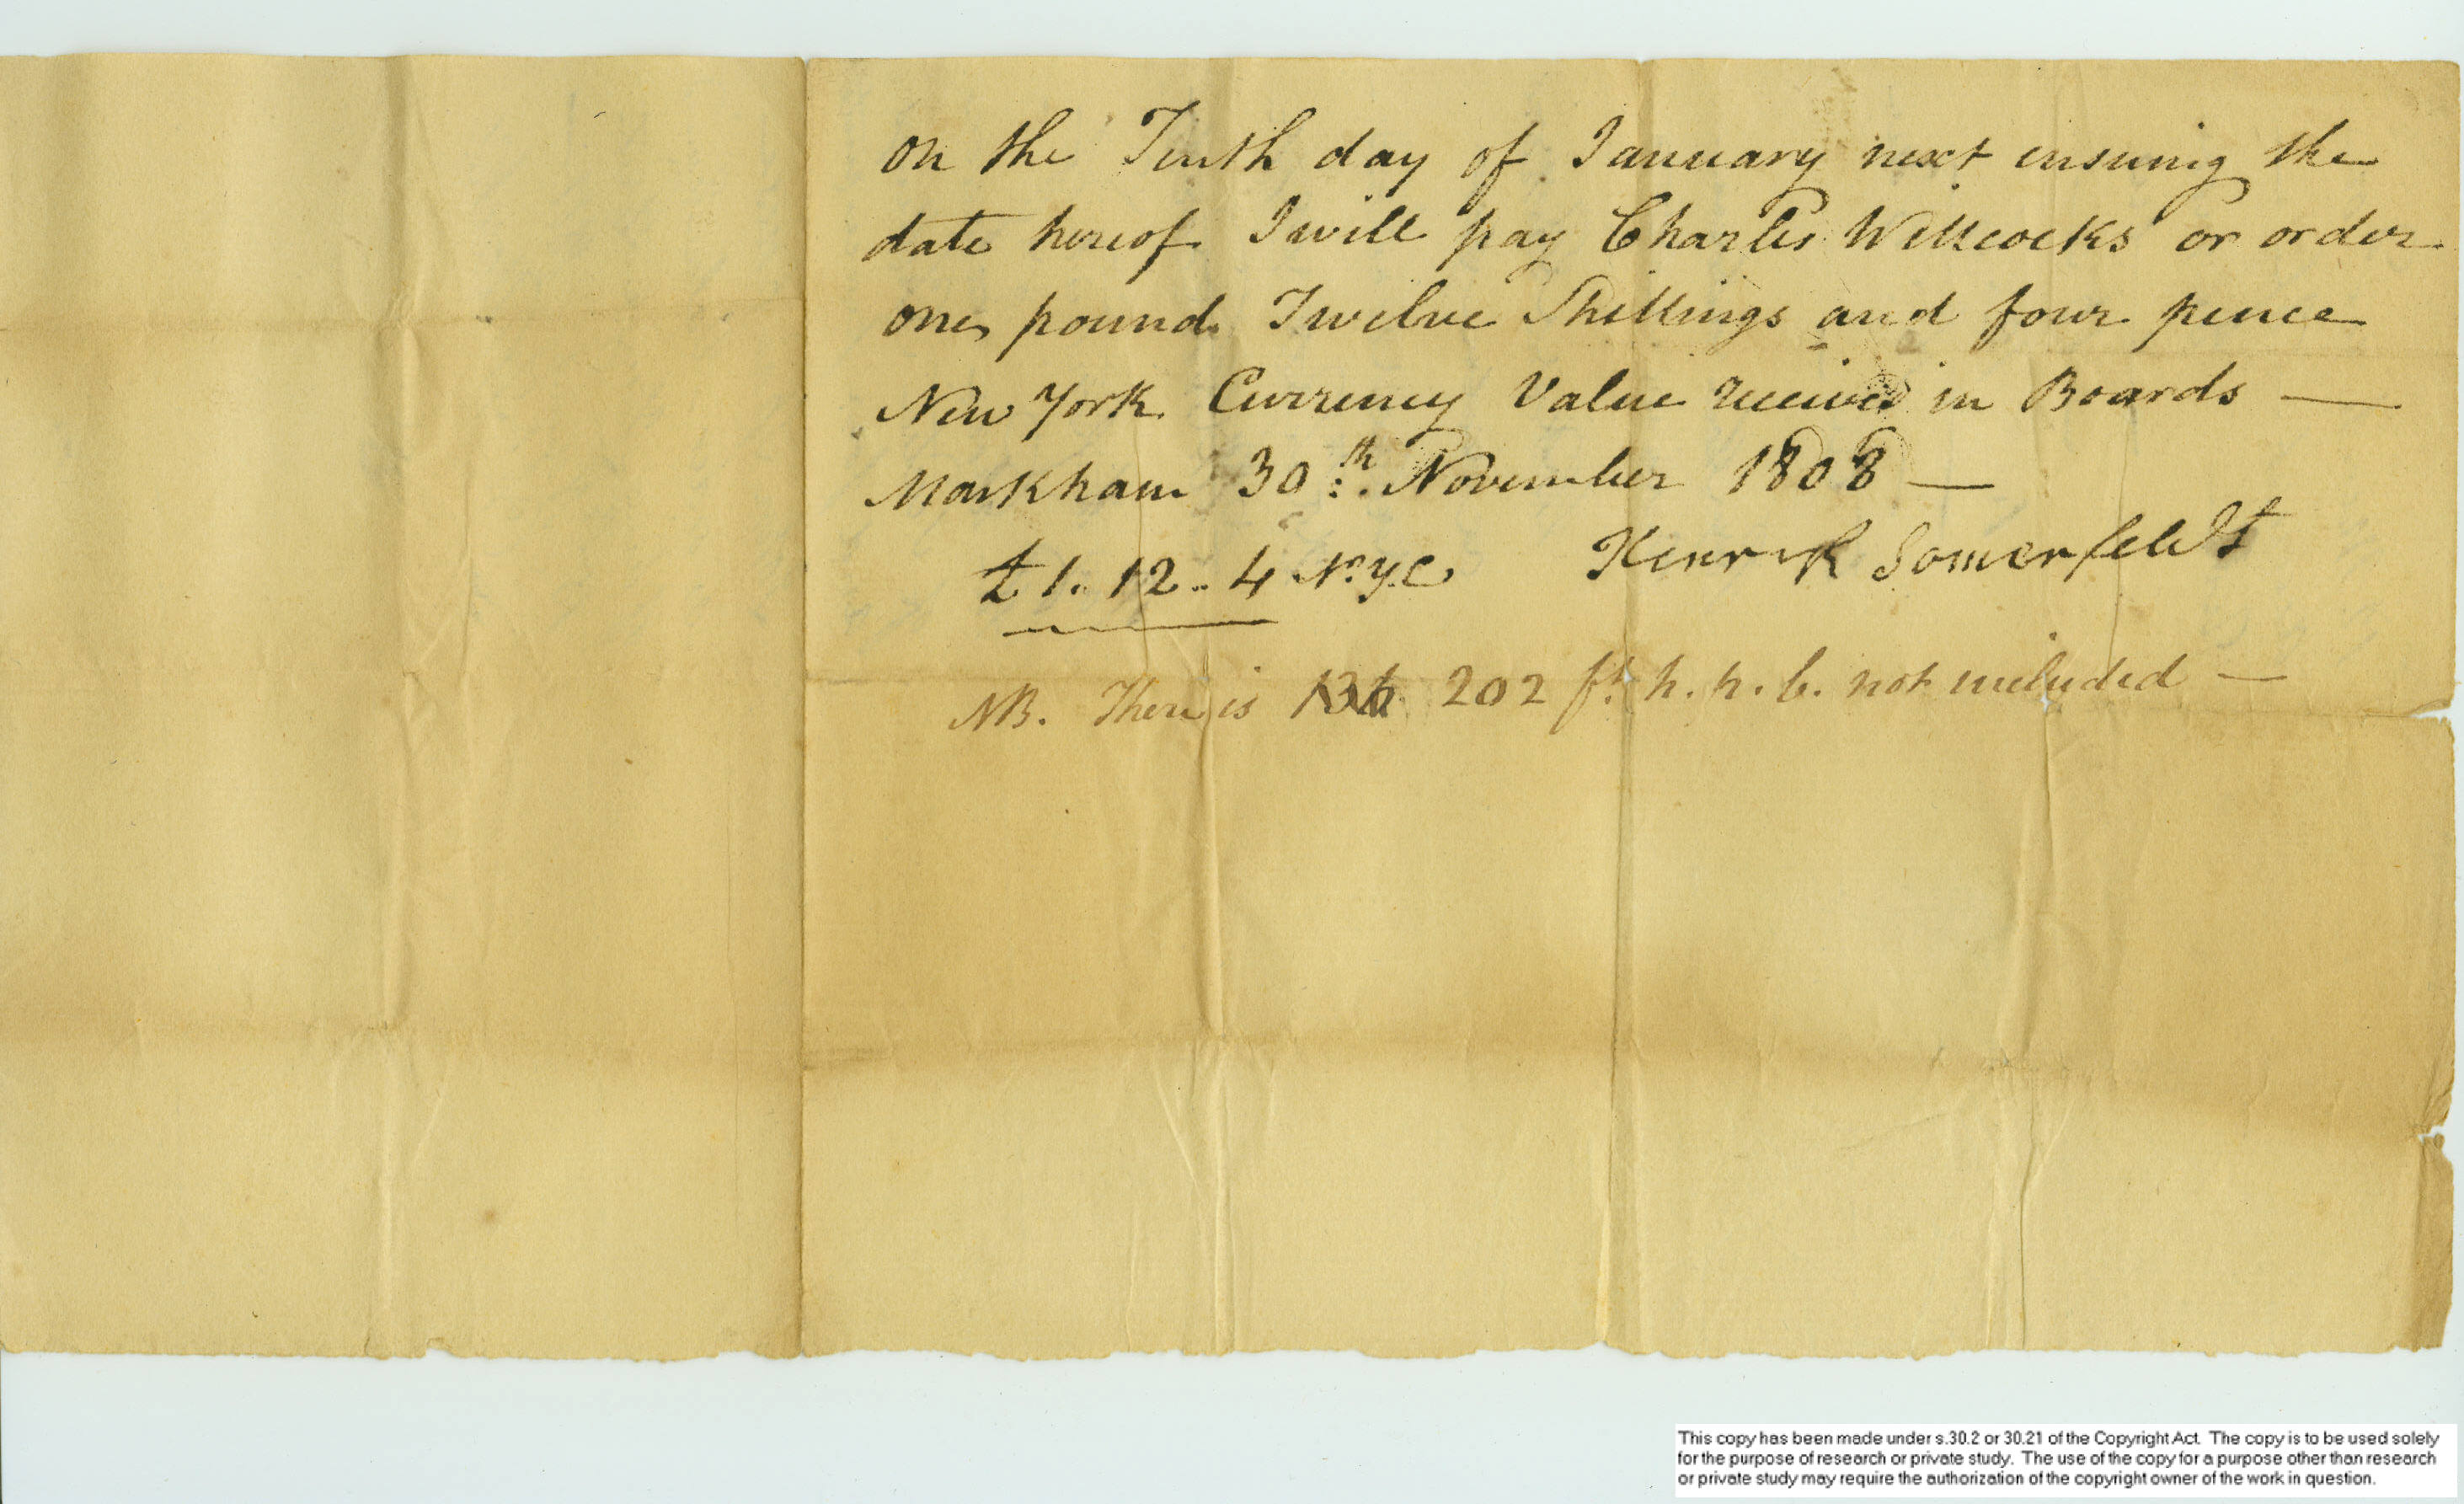 on the Tenth day of January next ensuing the
date hereof I will pay Charles Willcocks or order
one pound Twelve Shillings and four pence
New York Currency Value received in Boards —
Markham 30th November 1808 —
£1..12..4 N.Y.C Henrik Somerfeldt
NB. There is 202 ft h. h. b. not included —
This copy has been made under s.30.2 or 30.21 of the Copyright Act. The copy is to be used solely
for the purpose of research or private study. The use of the copy for a purpose other than research
or private study may require the authorization of the copyright owner of the work in question.